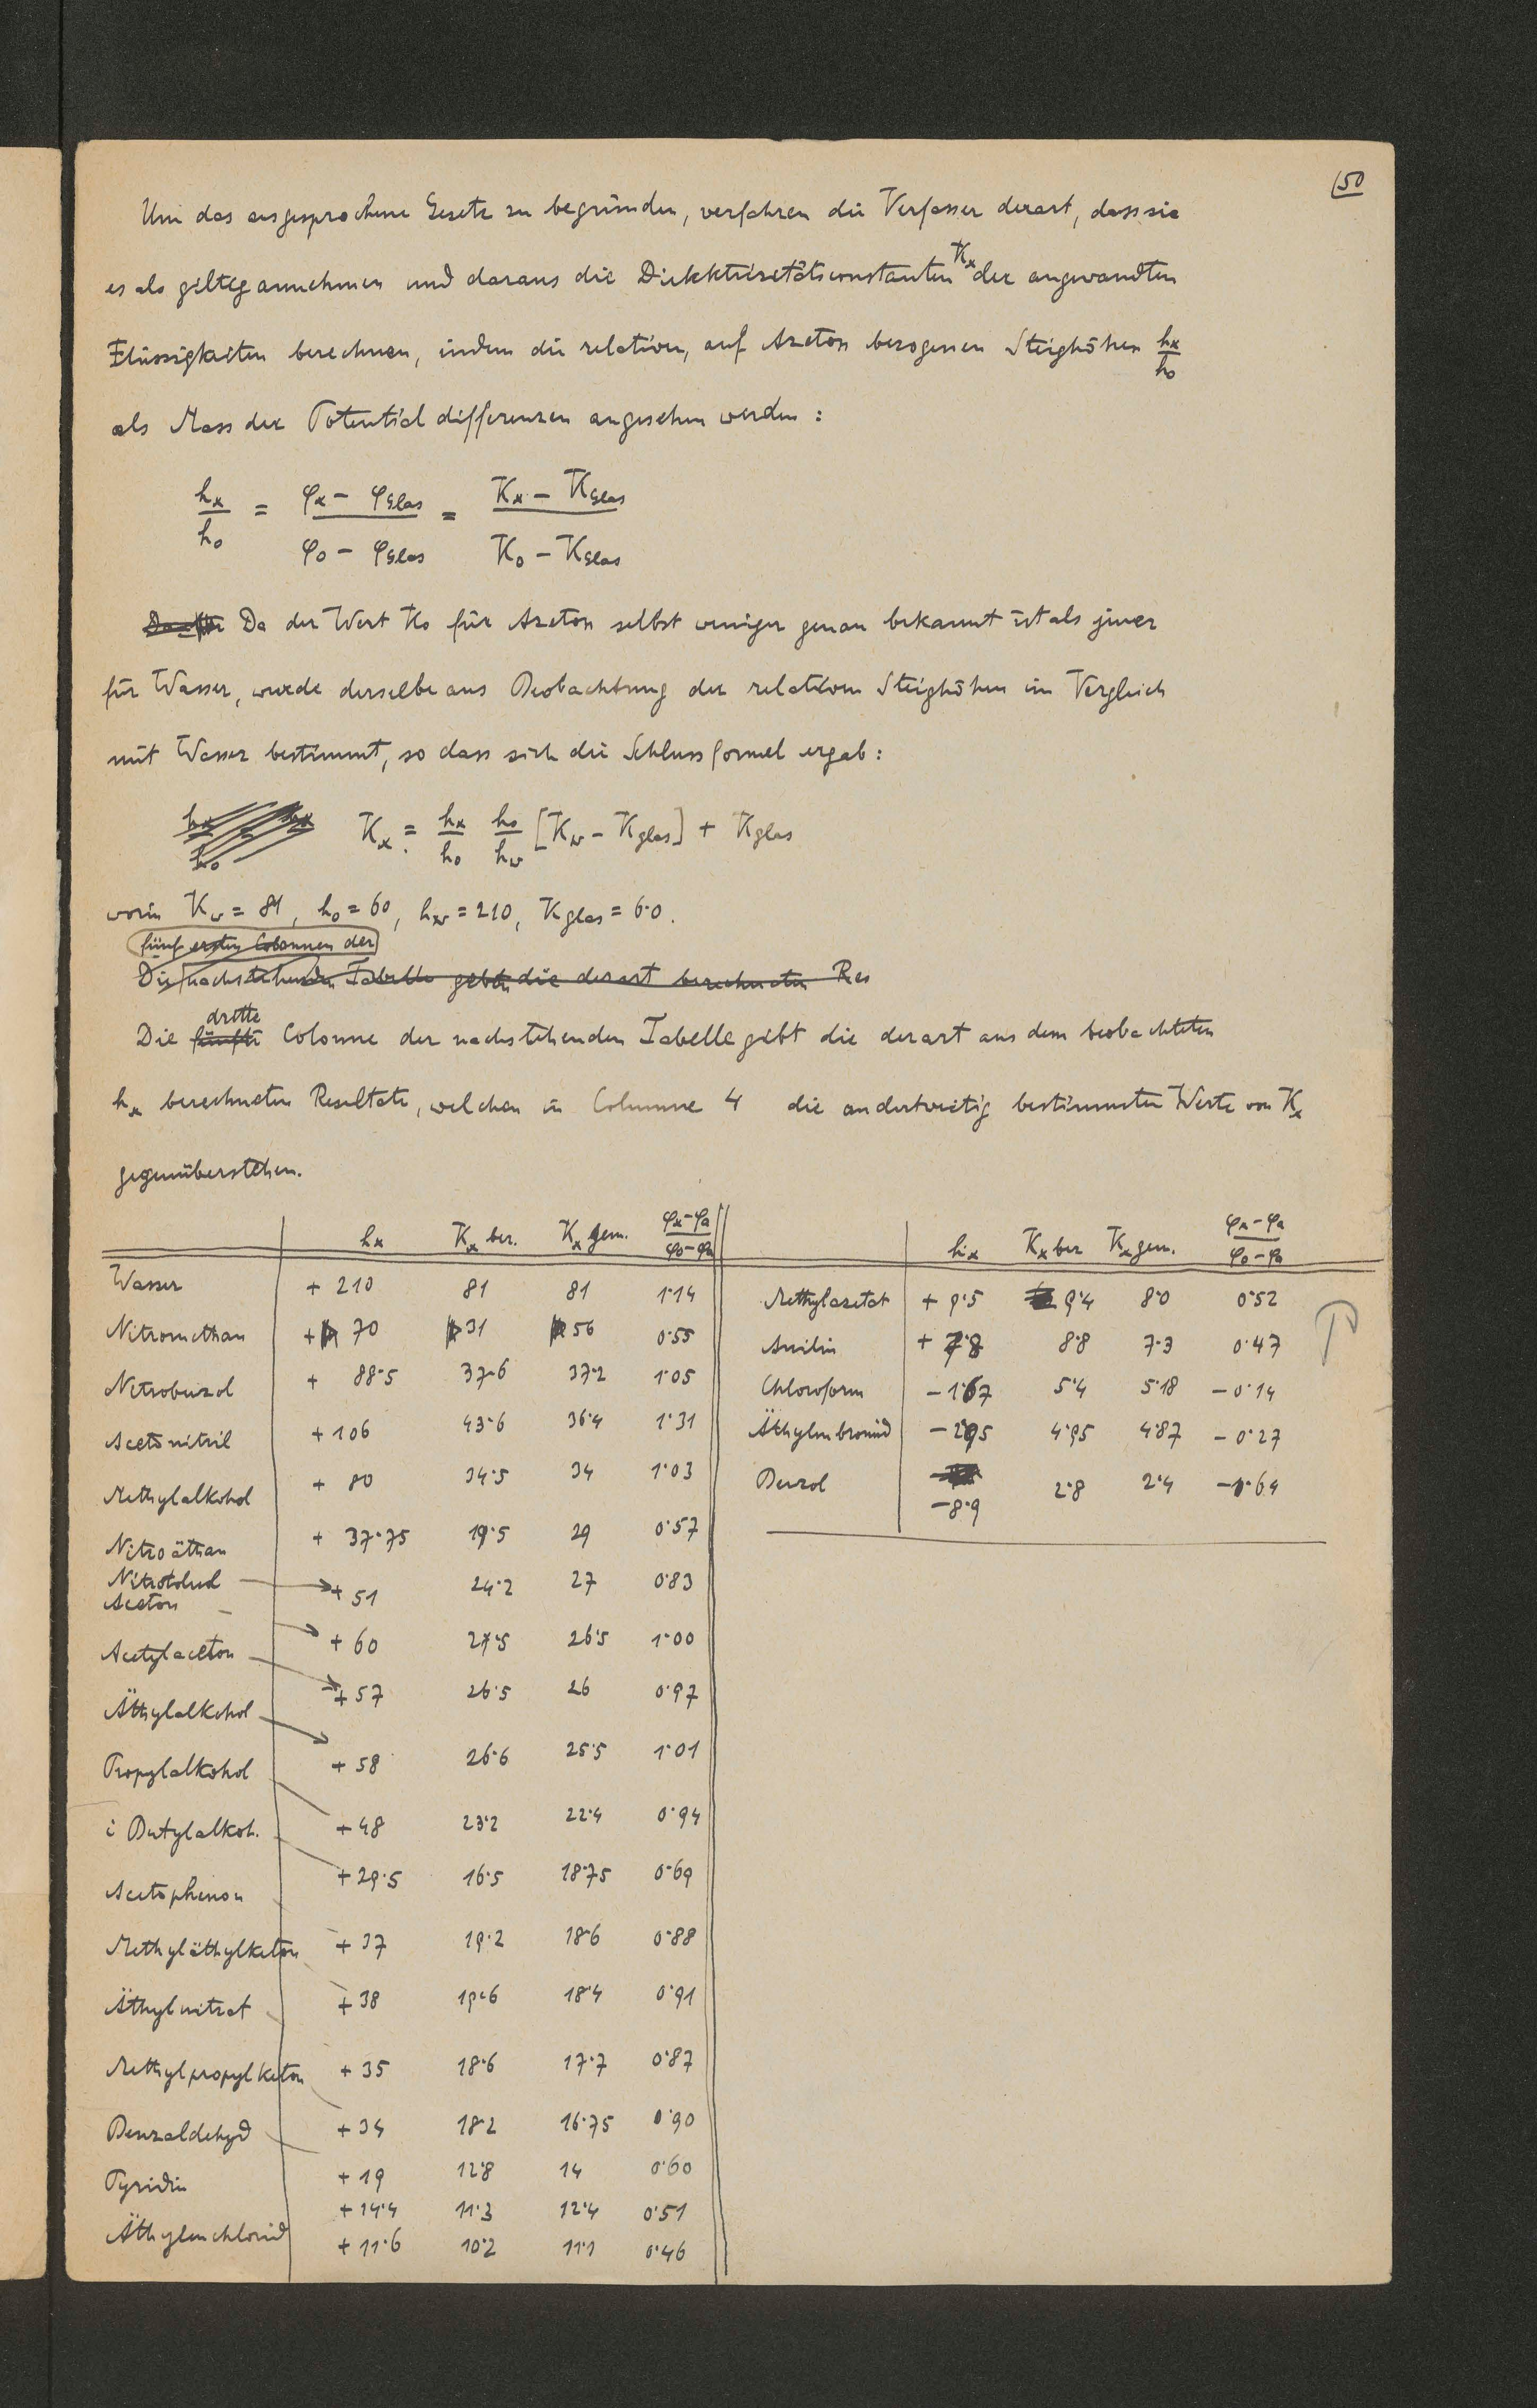 50
Um das ausgesprochene Gesetz zu begründen, verfahren die Verfasser derart, dass sie
es als giltig annehmen und daraus die Dielektrizitätsconstanten Kx der angewandten
Flüssigkeiten berechnen, indem die relativen, auf Azeton bezogenen Steighöhen hx/h0
als Mass der Potentialdifferenzen angesehen werden:
hx/h0 = (φx – φGlas)/(φ0 – φGlas) = (Kx – KGlas)/(K0 – KGlas)
Da der Wert K0 für Azeton selbst weniger genau bekannt ist als jener
für Wasser, wurde derselbe aus Beobachtung der relativen Steighöhen im Vergleich
mit Wasser bestimmt, so dass sich die Schlussformel ergab:
Kx = hx/h0 h0/hw [Kw – Kglas] + Kglas
worin Kw = 81, h0 = 60, hw = 210, Kglas = 6·0.
fünf ersten Colonnen der
Die nachstehenden Tabelle geben die derart berechneten Res
dritte
Die fünfte Colonne der nachstehenden Tabelle gibt die derart aus dem beobachteten
hx berechneten Resultate, welchen in Columne 4 die anderweitig bestimmten Werte von Kx
gegenüberstehen.
hx Kx ber. Kx gem. (φx–φa)/(φ0–φa)
Wasser + 210 81 81 1·14
Nitromethan + 70 31 56 0·55
Nitrobenzol + 88·5 37·6 37·2 1·05
Acetonitril + 106 43·6 36·4 1·31
Methylalkohol + 80 34·5 34 1·03
Nitroäthan + 37·75 19·5 29 0·57
Nitrotoluol + 51 24·2 27 0·83
Aceton + 60 27·5 26·5 1·00
Acetylaceton + 57 26·5 26 0·97
Äthylalkohol + 58 26·6 25·5 1·01
Propylalkohol + 48 23·2 22·4 0·94
i Butylalkoh. + 29·5 16·5 18·75 0·69
Acetophenon + 37 19·2 18·6 0·88
Methyläthylketon + 38 19·6 18·4 0·91
Äthylnitrat + 35 18·6 17·7 0·87
Methylpropylketon + 34 18·2 16·75 0·90
Benzaldehyd + 19 12·8 14 0·60
Pyridin + 14·4 11·3 12·4 0·51
Äthylenchlorid + 11·6 10·2 11·1 0·46
hx Kx ber Kx gem. (φx–φa)/(φ0–φa)
Methylazetat + 9·5 9·4 8·0 0·52
Anilin + 7·8 8·8 7·3 0·47
Chloroform – 1·67 5·4 5·18 – 0·14
Äthylenbromid – 2·95 4·95 4·87 – 0·27
Benzol – 8·9 2·8 2·4 – 1·64